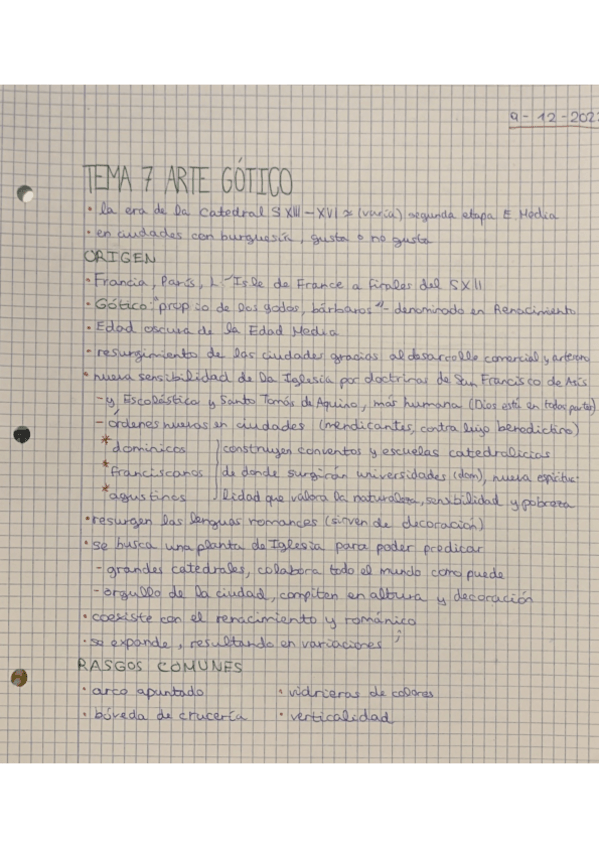 9-12-202
TEMA 7 ARTE GÓTICO
· la era de la catedral S XIII - XVI ≈ (varía) segunda etapa E. Media
· en ciudades con burguesía, gusta o no gusta
ORIGEN
· Francia, París, L'Isle de France a finales del S XII
· Gótico: "propio de los godos, bárbaros" - denominado en Renacimiento
· Edad oscura de la Edad Media
· resurgimiento de las ciudades gracias al desarrollo comercial y artesano
· nueva sensibilidad de la Iglesia por doctrinas de San Francisco de Asís
- y Escolástica y Santo Tomás de Aquino, más humana (Dios está en todas partes)
- órdenes nuevas en ciudades (mendicantes, contra lujo benedictino)
* dominicos construyen conventos y escuelas catedralicias
* franciscanos de donde surgirán universidades (dom), nueva espiritua-
* agustinos lidad que valora la naturaleza, sensibilidad y pobreza
· resurgen las lenguas romances (sirven de decoración)
· se busca una planta de Iglesia para poder predicar
- grandes catedrales, colabora todo el mundo como puede
- orgullo de la ciudad, compiten en altura y decoración
· coexiste con el renacimiento y románico
· se expande, resultando en variaciones ;
RASGOS COMUNES
· arco apuntado · vidrieras de colores
· bóveda de crucería · verticalidad